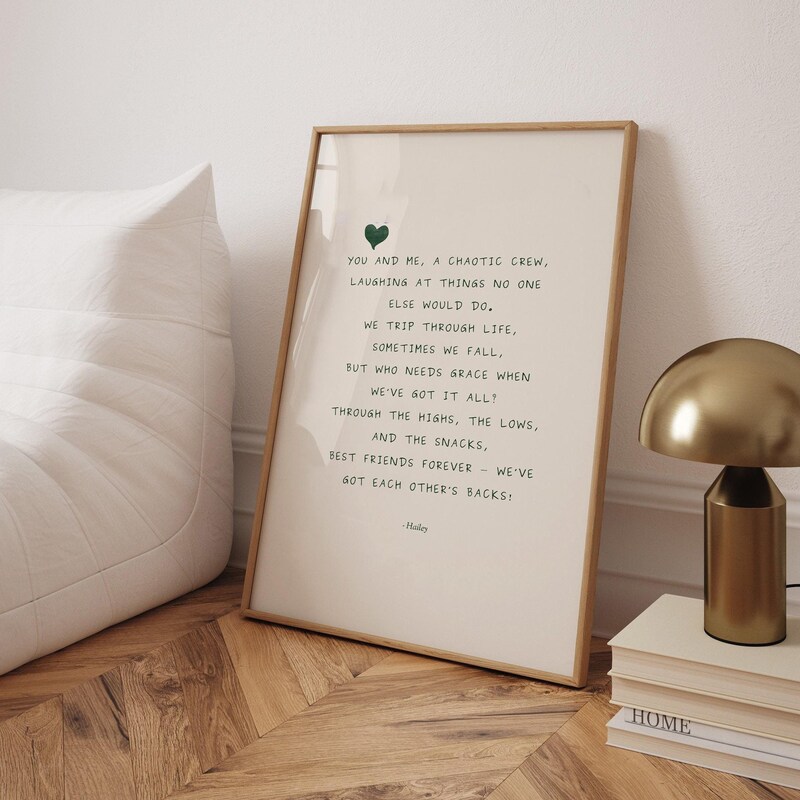 YOU AND ME, A CHAOTIC CREW,
LAUGHING AT THINGS NO ONE
ELSE WOULD DO.
WE TRIP THROUGH LIFE,
SOMETIMES WE FALL,
BUT WHO NEEDS GRACE WHEN
WE'VE GOT IT ALL?
THROUGH THE HIGHS, THE LOWS,
AND THE SNACKS,
BEST FRIENDS FOREVER – WE'VE
GOT EACH OTHER'S BACKS!
- Hailey
HOME